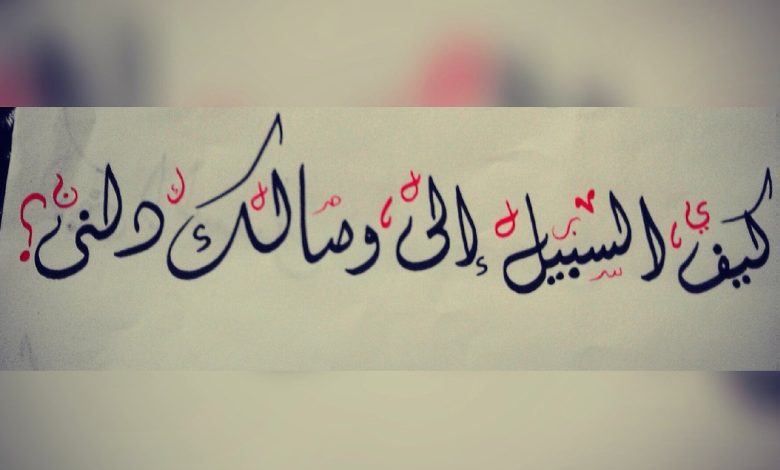 كيف السبيل إلى وصالك دلني؟